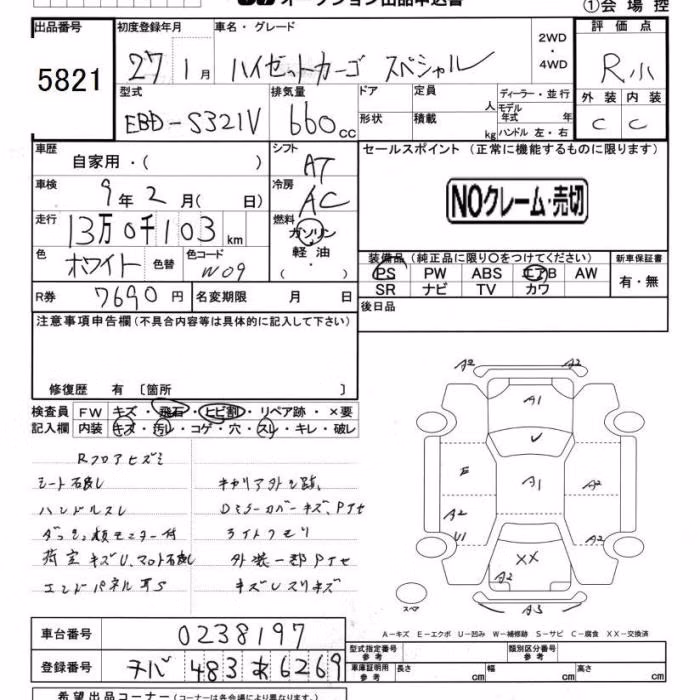 オークション出品申込書 ①会場控
出品番号 初度登録年月 車名・グレード 2WD・4WD 評価点
5821 27 1月 ハイゼットカーゴ スペシャル R小
型式 排気量 ドア 定員 人 ディーラー・並行 外装 内装
EBD-S321V 660cc 形状 積載 kg モデル年式 年 ハンドル 左・右 C C
車歴 自家用・( ) シフト AT セールスポイント (正常に機能するものに限ります)
車検 9年2月( 日) 冷房 AC NOクレーム・売切
走行 13万0千103km 燃料 ガソリン・軽油・( )
色 ホワイト 色替 色コード W09 装備品 (純正品に限り○をつけてください) 新車保証書
PS PW ABS エアB AW 有・無
SR ナビ TV カワ
R券 7690円 名変期限 月 日 後日品
注意事項申告欄 (不具合内容等は具体的に記入して下さい)
修復歴 有 [箇所 ]
検査員 FW キズ・飛石・ヒビ割・リペア跡・×要
記入欄 内装 キズ・汚レ・コゲ・穴・スレ・キレ・破レ
Rフロアヒズミ
シート汚レ キャリア外し跡
ハンドルスレ Dミラーカバーキズ、Pイセ
ダッシュ板モニター付 ライトクモリ
荷室キズU、マット汚レ 外装一部Pイセ
エンドパネル耳S キズUスリキズ
A2 A2
A1
U
E A1 A2
A2
U1 A2
XX
A2
スペア A3
A-キズ E-エクボ U-凹み W-補修跡 S-サビ C-腐食 XX-交換済
車台番号 0238197
型式指定番号 参考 類別区分番号 参考
登録番号 チバ 483 あ 6269
車庫証明用 参考 長さ cm 幅 cm 高さ cm
希望出品コーナー (コーナーは各会場により異なります。)